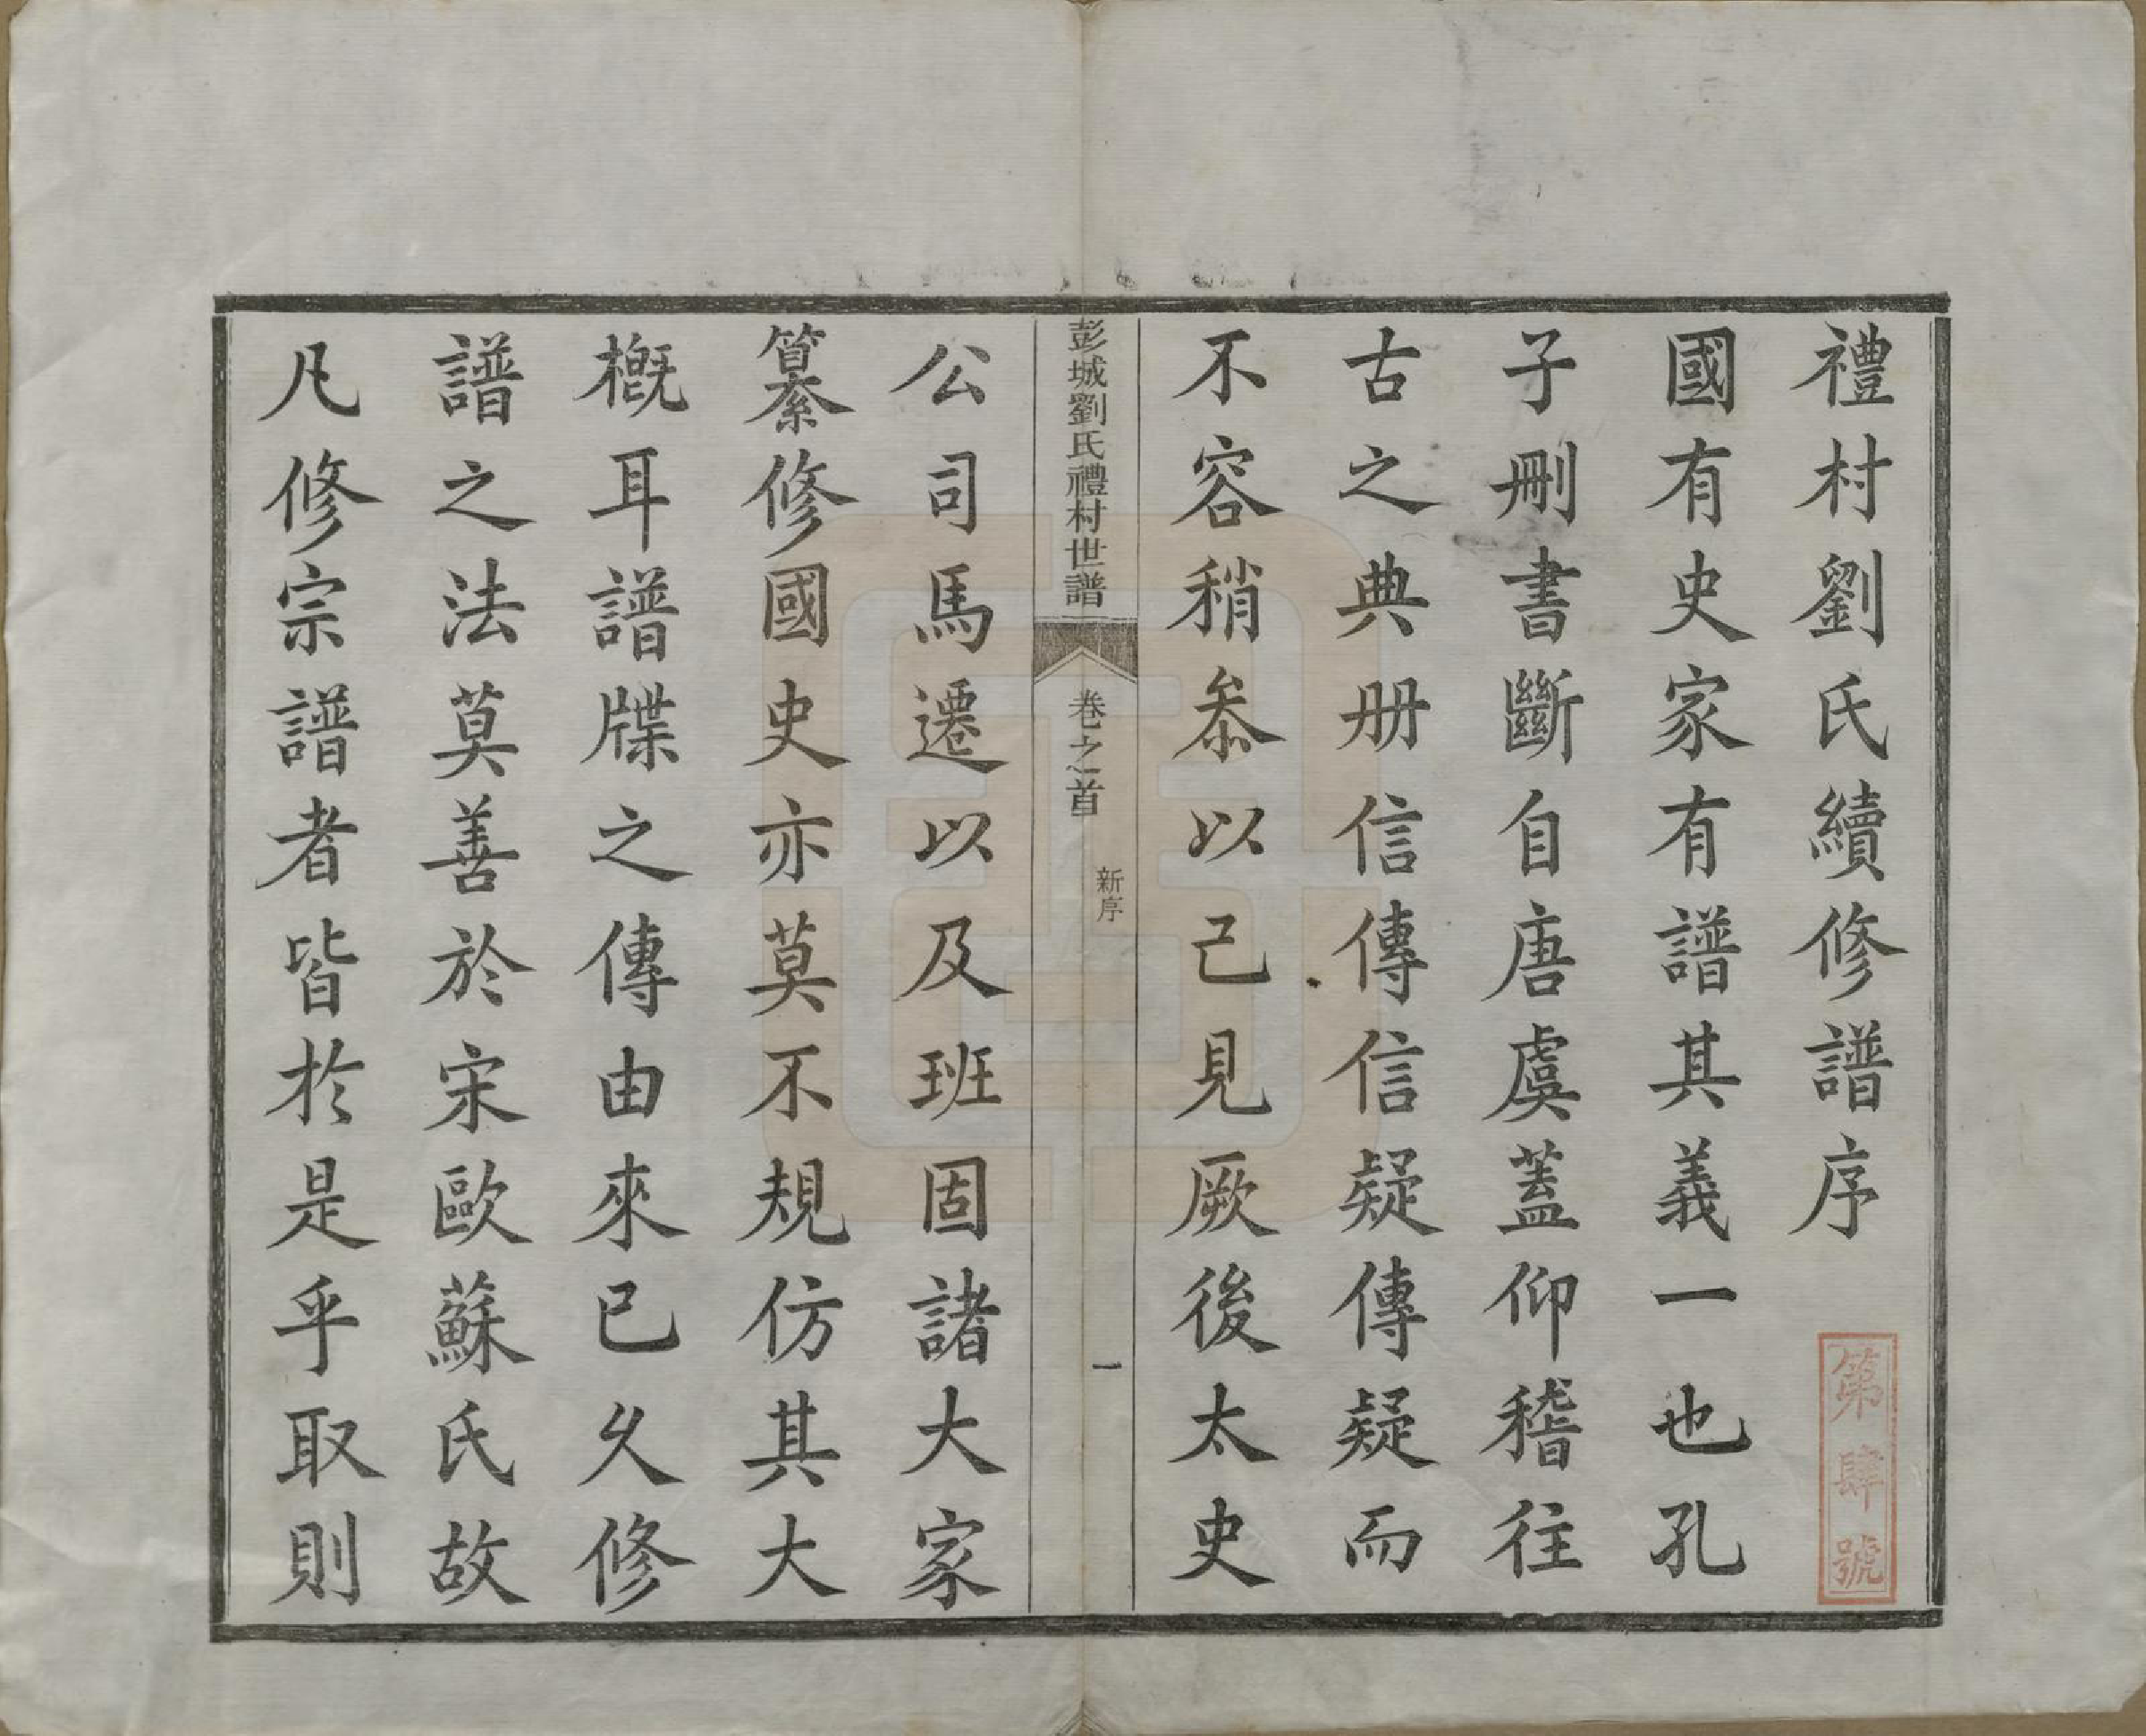 禮村劉氏續修譜序
第肆號
國有史家有譜其義一也孔
子刪書斷自唐虞蓋仰稽往
古之典册信傳信疑傳疑而
不容稍叅以己見厥後太史
彭城劉氏禮村世譜
卷之首
新序
一
公司馬遷以及班固諸大家
纂修國史亦莫不規仿其大
概耳譜牒之傳由來已久修
譜之法莫善於宋歐蘇氏故
凡修宗譜者皆於是乎取則